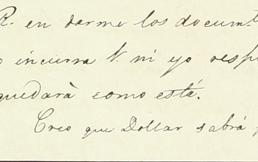 R. en darme los documt
incurra V. ni yo resp
quedarà como está.
Creo que Dollar sabrá